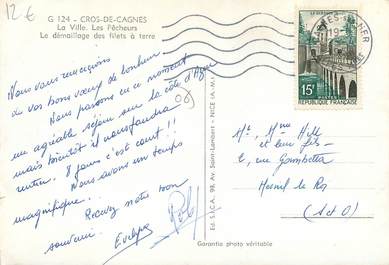 12 €
G 124 - CROS-DE-CAGNES
La Ville. Les Pêcheurs
Le démaillage des filets à terre
Nous vous remercions
de vos bons vœux de bonheur
Nous passons en ce moment
un agréable séjour sur la côte d'Azur
mais bientôt il nous faudra
rentrer. 8 jours c'est court !!
Nous avons un temps
magnifique...
Recevez notre bon
souvenir.
06
Ed. S.E.C.A. 98, Av. Saint-Lambert - NICE (A.-M.)
15F
POSTES
REPUBLIQUE FRANÇAISE
Mr, Mme Hill
et leur fils
2, rue Gambetta
Mesnil le Roi
(S et O)
Garantie photo véritable